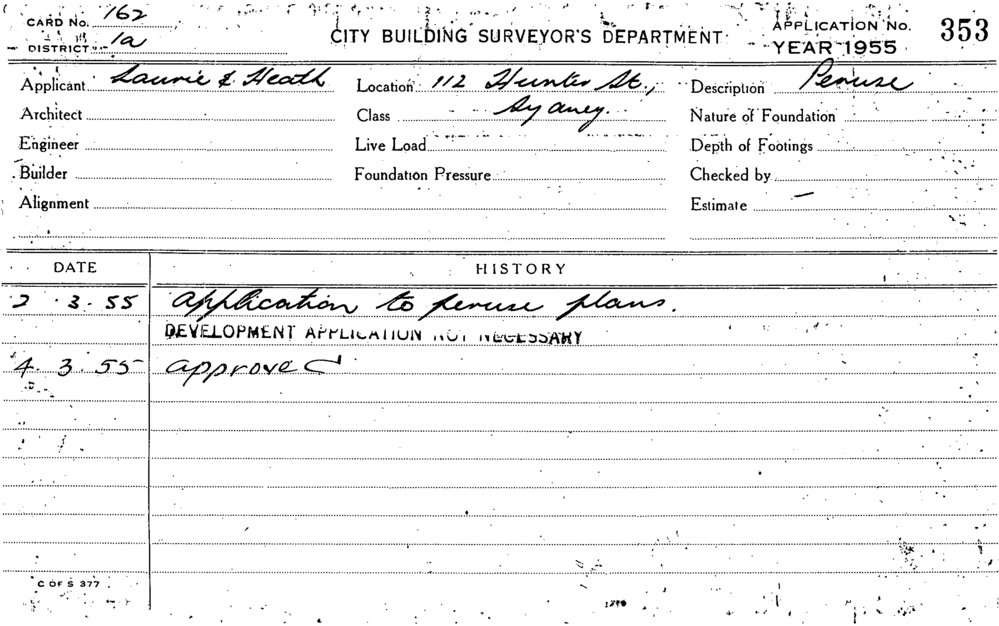 CARD No. 162
DISTRICT 1a
CITY BUILDING SURVEYOR'S DEPARTMENT
APPLICATION No. 353
YEAR 1955
Applicant Laurie & Heath Location 112 Hunter St., Description Peruse
Architect Class Sydney. Nature of Foundation
Engineer Live Load Depth of Footings
Builder Foundation Pressure Checked by
Alignment Estimate —
DATE HISTORY
2 . 3 . 55 application to peruse plans.
DEVELOPMENT APPLICATION NOT NECESSARY
4. 3. 55 approved
C OF S 377